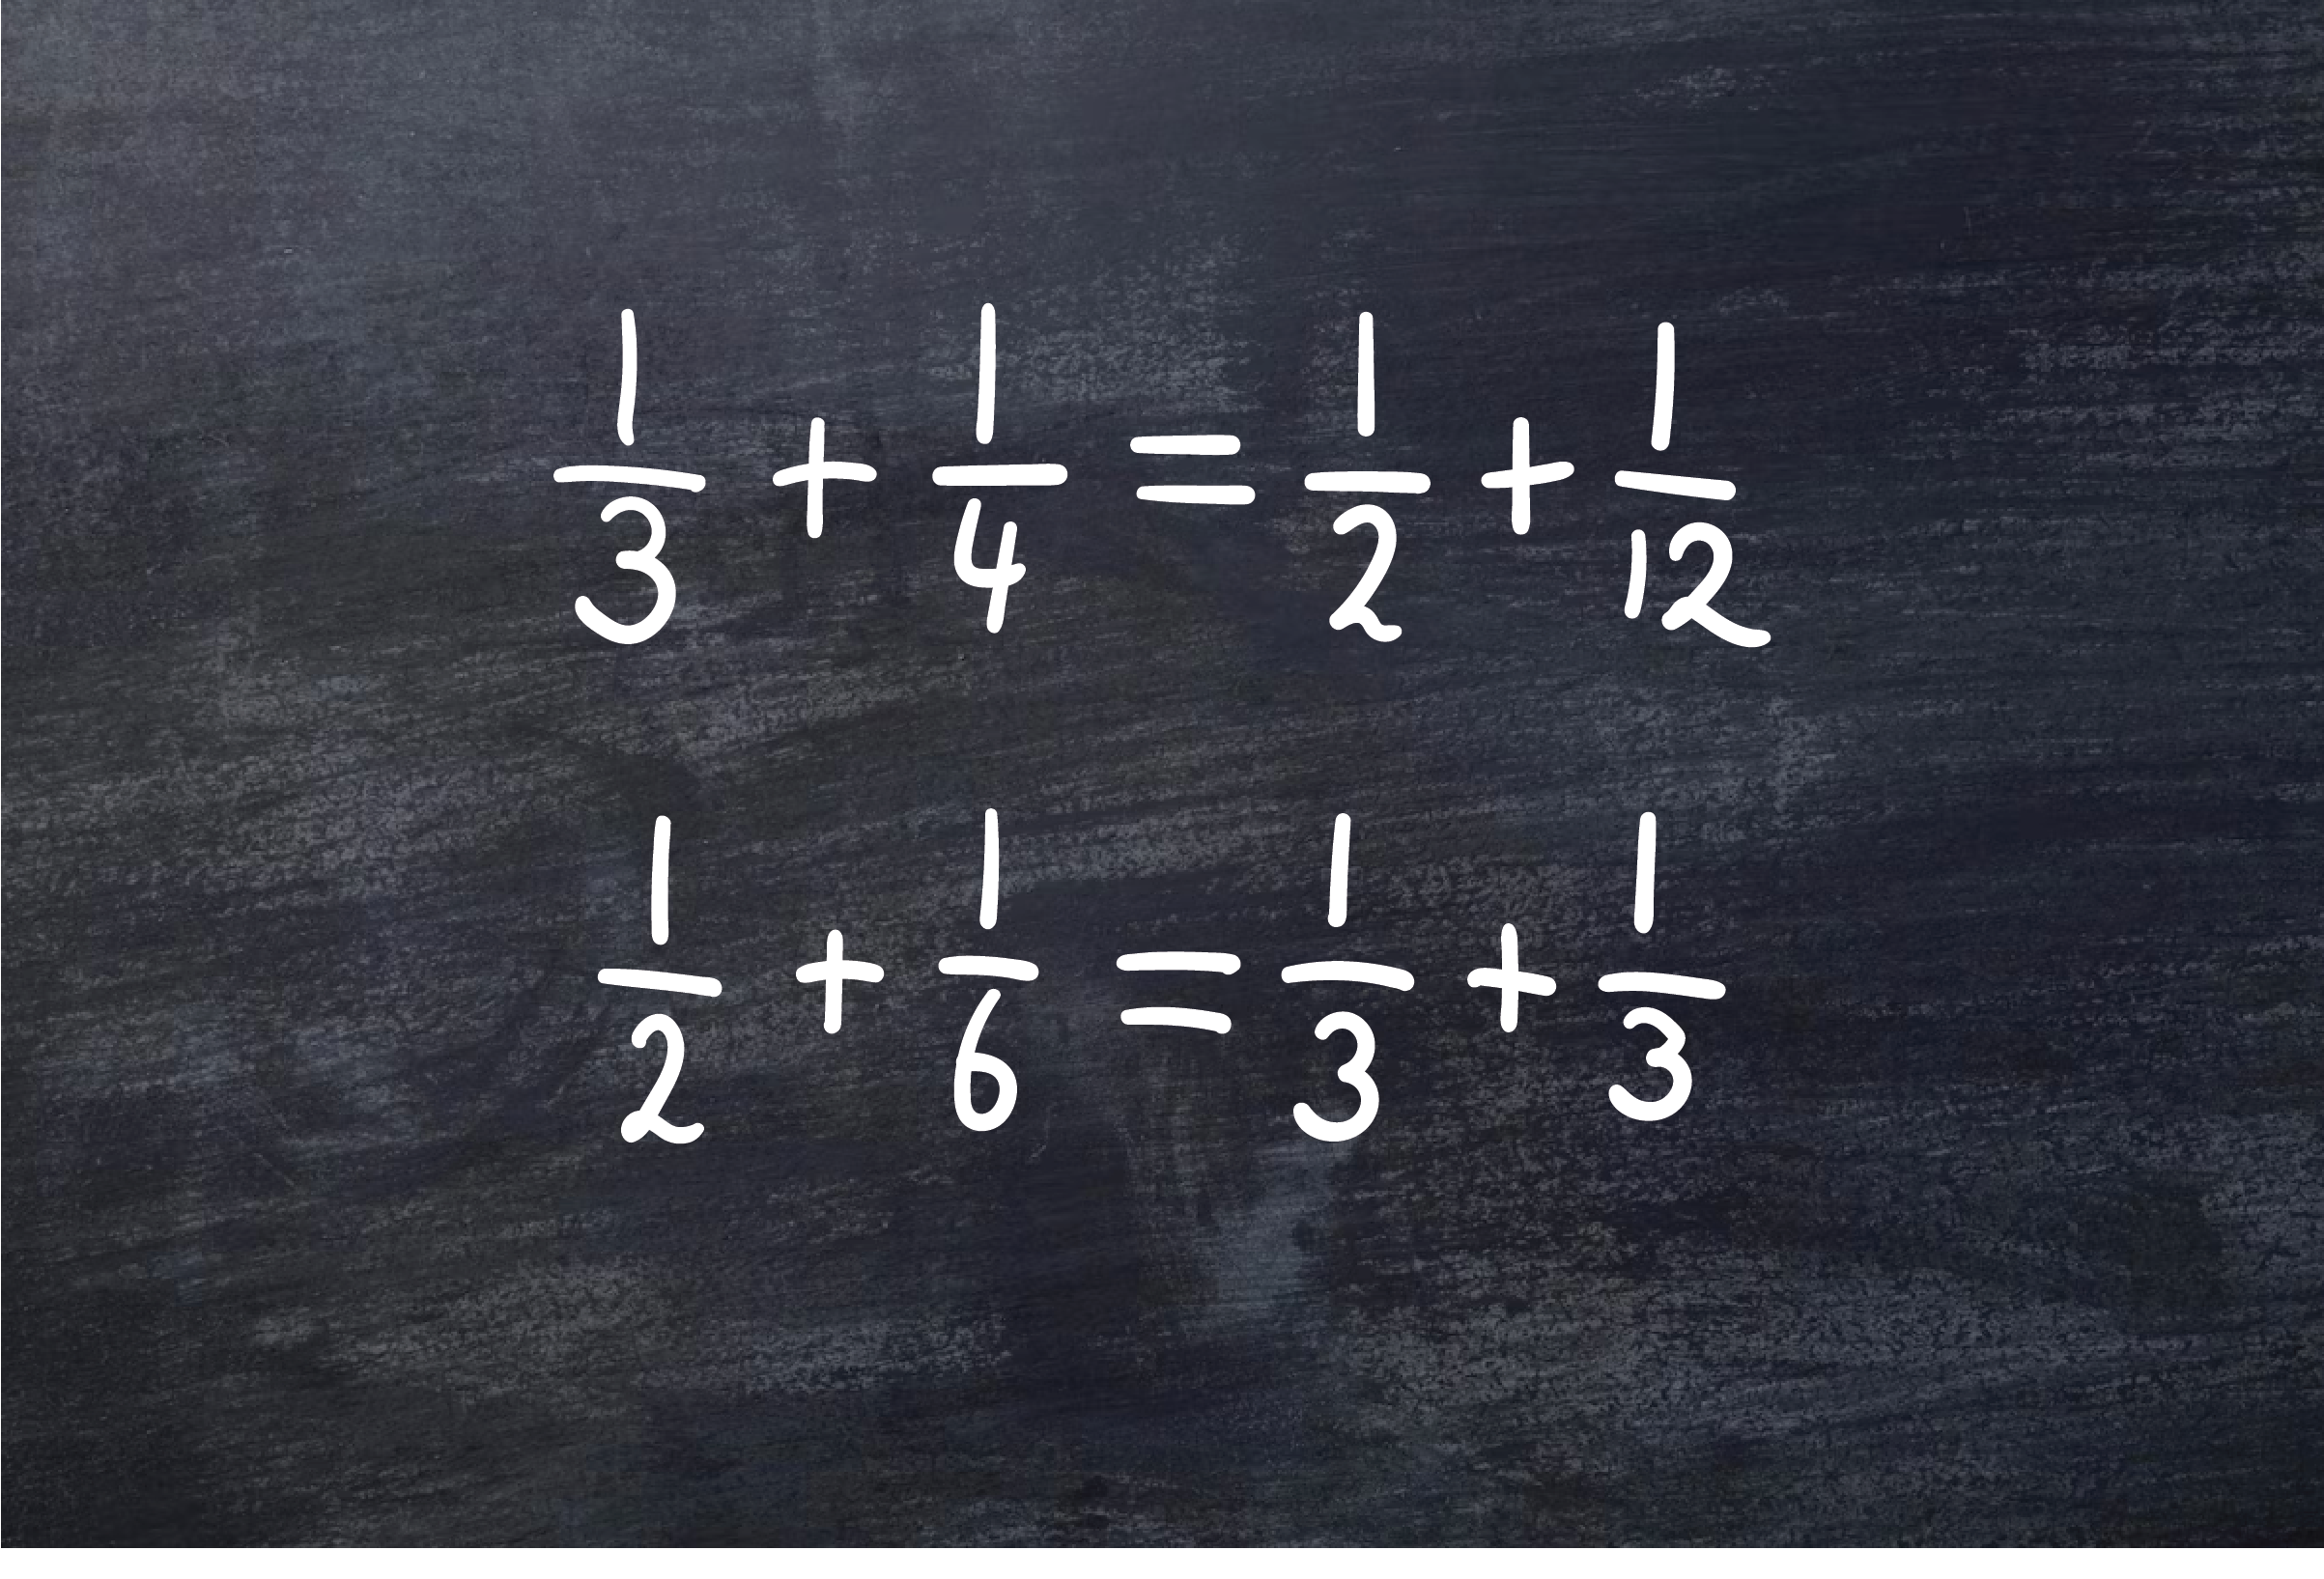 1/3 + 1/4 = 1/2 + 1/12
1/2 + 1/6 = 1/3 + 1/3